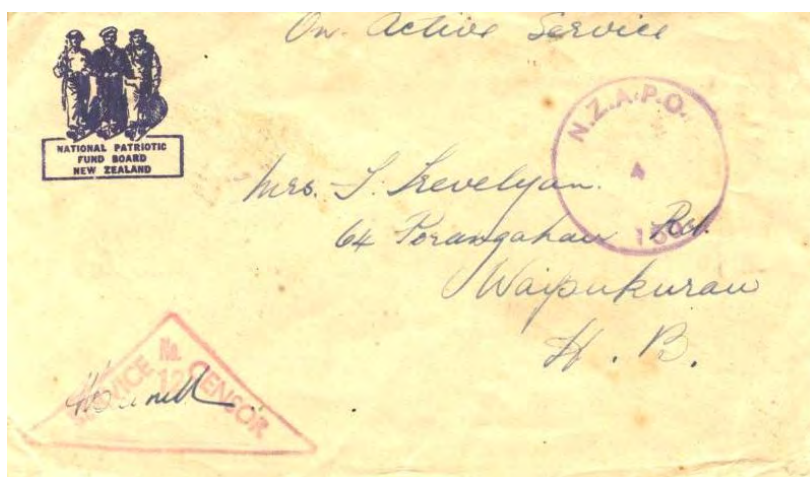 On Active Service
NATIONAL PATRIOTIC
FUND BOARD
NEW ZEALAND
N.Z.A.P.O.
Mrs. T. Trevelyan.
64 Porangahau Rd.
Waipukurau
H. B.
SERVICE No. CENSOR